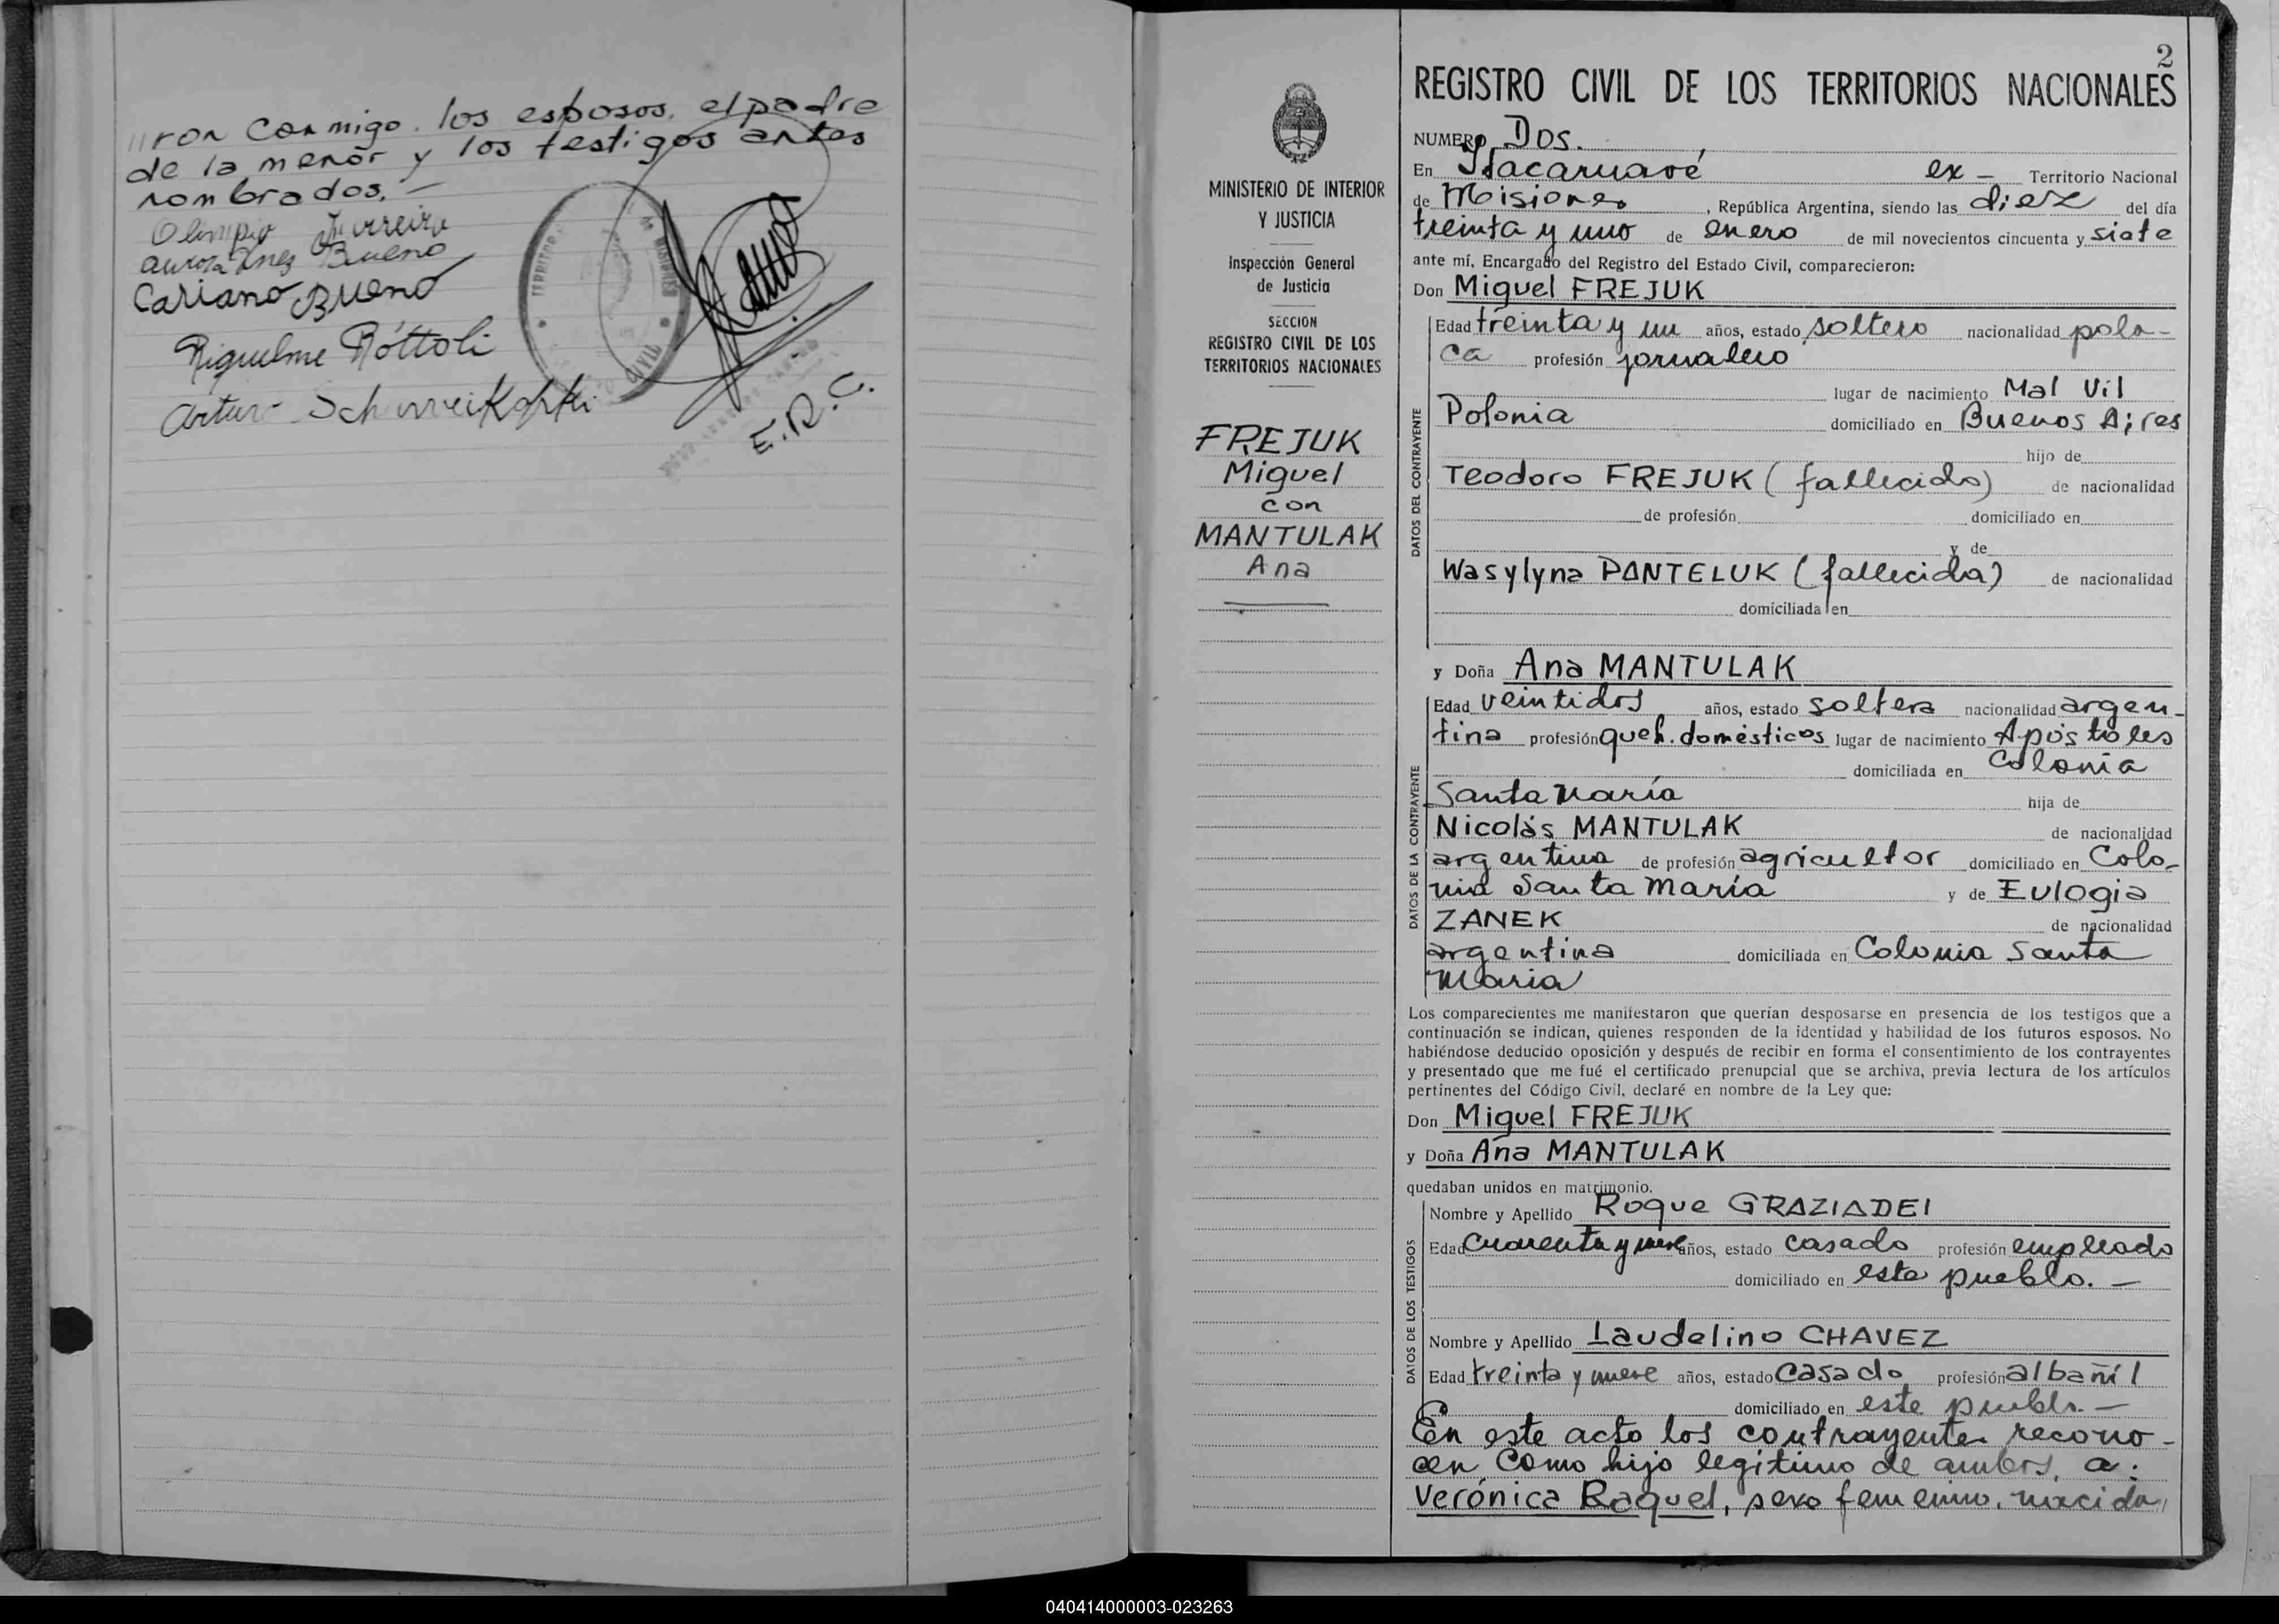 //ron conmigo. los esposos, el padre
de la menor y los testigos antes
nombrados. —
Olimpio Ferreira
Aurora Inez Bueno
Cariano Bueno
Riquelme Róttoli
Arturo
E.R.C.
TERRITORIO
de MISIONES
CIVIL
MINISTERIO DE INTERIOR
Y JUSTICIA
Inspección General
de Justicia
SECCION
REGISTRO CIVIL DE LOS
TERRITORIOS NACIONALES
FREJUK
Miguel
con
MANTULAK
Ana
2
REGISTRO CIVIL DE LOS TERRITORIOS NACIONALES
NUMERO Dos.
En Itacaruaré ex — Territorio Nacional
de Misiones, República Argentina, siendo las diez del día
treinta y uno de enero de mil novecientos cincuenta y siete
ante mí, Encargado del Registro del Estado Civil, comparecieron:
Don Miguel FREJUK
DATOS DEL CONTRAYENTE
Edad treinta y un años, estado soltero nacionalidad pola-
ca profesión jornalero
lugar de nacimiento Mal Vil
Polonia domiciliado en Buenos Aires
hijo de
Teodoro FREJUK (fallecido) de nacionalidad
de profesión domiciliado en
y de
Wasylyna PANTELUK (fallecida) de nacionalidad
domiciliada en
y Doña Ana MANTULAK
DATOS DE LA CONTRAYENTE
Edad veintidos años, estado soltera nacionalidad argen-
tina profesión queh. domésticos lugar de nacimiento Apóstoles
domiciliada en Colonia
Santa María hija de
Nicolás MANTULAK de nacionalidad
argentina de profesión agricultor domiciliado en Colo-
nia Santa María y de Eulogia
ZANEK de nacionalidad
argentina domiciliada en Colonia Santa
Maria
Los comparecientes me manifestaron que querían desposarse en presencia de los testigos que a
continuación se indican, quienes responden de la identidad y habilidad de los futuros esposos. No
habiéndose deducido oposición y después de recibir en forma el consentimiento de los contrayentes
y presentado que me fué el certificado prenupcial que se archiva, previa lectura de los artículos
pertinentes del Código Civil, declaré en nombre de la Ley que:
Don Miguel FREJUK
y Doña Ana MANTULAK
quedaban unidos en matrimonio.
DATOS DE LOS TESTIGOS
Nombre y Apellido Roque GRAZIADEI
Edad Cuarenta y nueve años, estado casado profesión empleado
domiciliado en este pueblo. —
Nombre y Apellido Laudelino CHAVEZ
Edad treinta y nueve años, estado casado profesión albañil
domiciliado en este pueblo. —
En este acto los contrayentes recono-
cen como hijo legitimo de ambos, a:
Verónica Raquel, sexo femenino, nacida//
040414000003-023263